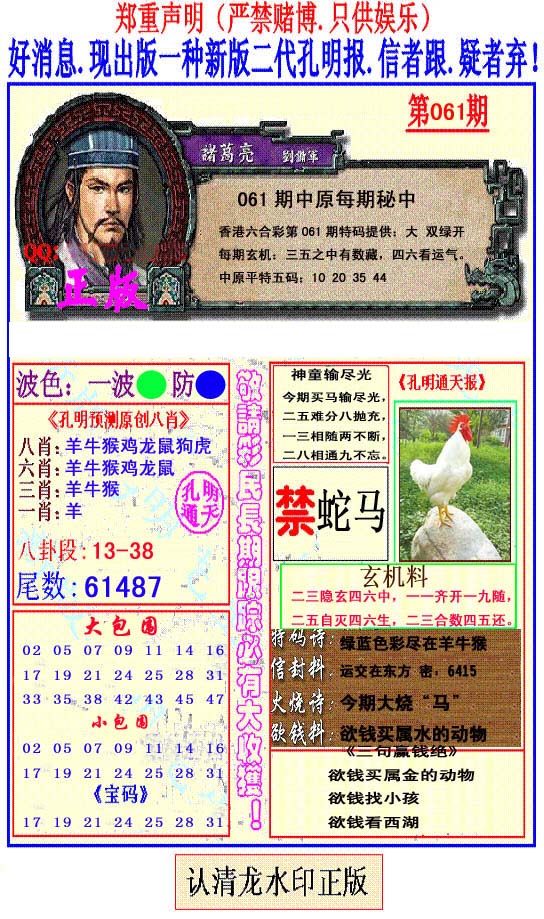 郑重声明（严禁赌博.只供娱乐）
好消息.现出版一种新版二代孔明报.信者跟.疑者弃！
第061期
諸葛亮 劉備軍
061 期中原每期秘中
香港六合彩第 061 期特码提供：大 双绿开
每期玄机：三五之中有数藏，四六看运气。
中原平特五码：10 20 35 44
QQ:
正版
波色：一波 防
《孔明预测原创八肖》
八肖：羊牛猴鸡龙鼠狗虎
六肖：羊牛猴鸡龙鼠
三肖：羊牛猴
一肖：羊
孔明
通天
八卦段：13-38
尾数：61487
大包围
02 05 07 09 11 14 16
17 19 21 24 25 28 31
33 35 38 42 43 45 47
小包围
02 05 07 09 11 14 16
17 19 21 24 25 28 31
《宝码》
17 19 21 24 25 28 31
敬請彩民長期跟踪必有大收獲！
神童输尽光
今期买马输尽光，
二五难分八抛充，
一三相随两不断，
二八相通九不忘。
《孔明通天报》
禁 蛇马
玄机料
二三隐玄四六中，一一齐开一九随，
二五自灭四六生，二三合数四五还。
特码诗：绿蓝色彩尽在羊牛猴
信封料：运交在东方 密：6415
火烧诗：今期大烧“马”
欲钱料：欲钱买属水的动物
《三句赢钱绝》
欲钱买属金的动物
欲钱找小孩
欲钱看西湖
认清龙水印正版